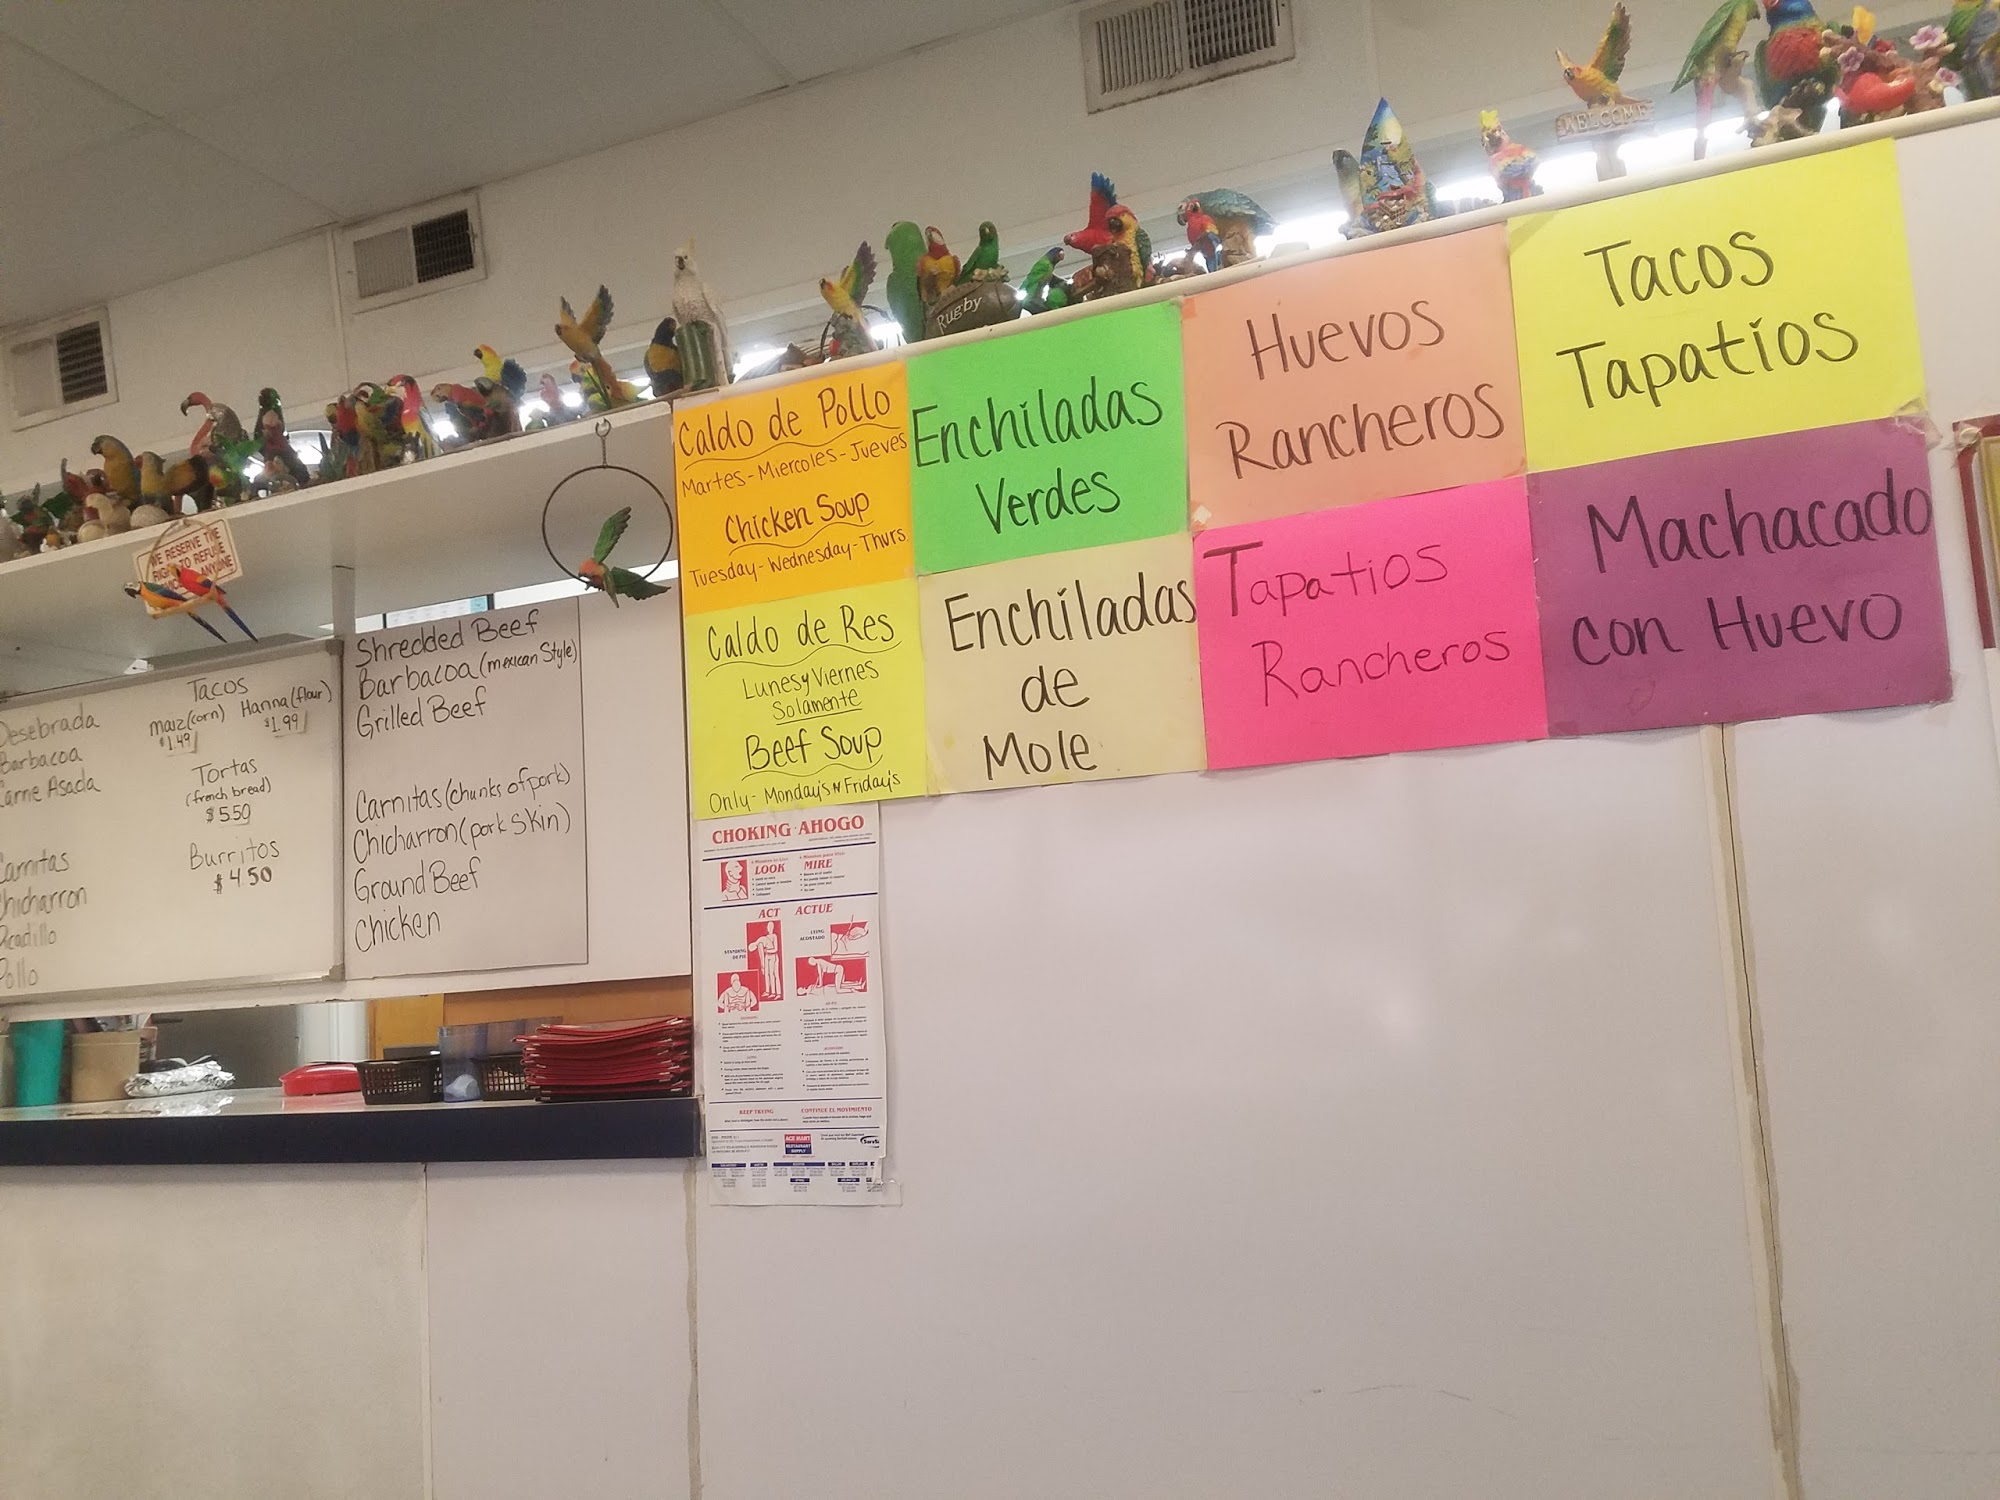 WELCOME
Rugby
WE RESERVE THE
RIGHT TO REFUSE
ANYONE
Desebrada
Barbacoa
Carne Asada
Carnitas
Chicharron
Picadillo
Pollo
Tacos
maiz(corn) Harina(flour)
$1.49 $1.99
Tortas
(french bread)
$5.50
Burritos
$4.50
Shredded Beef
Barbacoa (mexican Style)
Grilled Beef
Carnitas (chunks of pork)
Chicharron (pork skin)
Ground Beef
Chicken
Caldo de Pollo
Martes-Miercoles-Jueves
Chicken Soup
Tuesday-Wednesday-Thurs.
Caldo de Res
Lunes y Viernes
Solamente
Beef Soup
Only- Monday's N Friday's
Enchiladas
Verdes
Enchiladas
de
Mole
Huevos
Rancheros
Tapatios
Rancheros
Tacos
Tapatios
Machacado
con Huevo
CHOKING · AHOGO
LOOK MIRE
ACT ACTUE
STANDING
DE PIE
LYING
ACOSTADO
KEEP TRYING CONTINUE EL MOVIMIENTO
ACE MART
RESTAURANT
SUPPLY